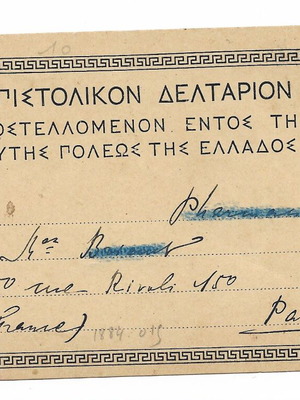 10
ΠΙΣΤΟΛΙΚΟΝ ΔΕΛΤΑΡΙΟΝ
ΟΣΤΕΛΛΟΜΕΝΟΝ ΕΝΤΟΣ ΤΗ
ΥΤΗΣ ΠΟΛΕΩΣ ΤΗΣ ΕΛΛΑΔΟΣ
0 rue Rivoli 150
Pa
France)
1884